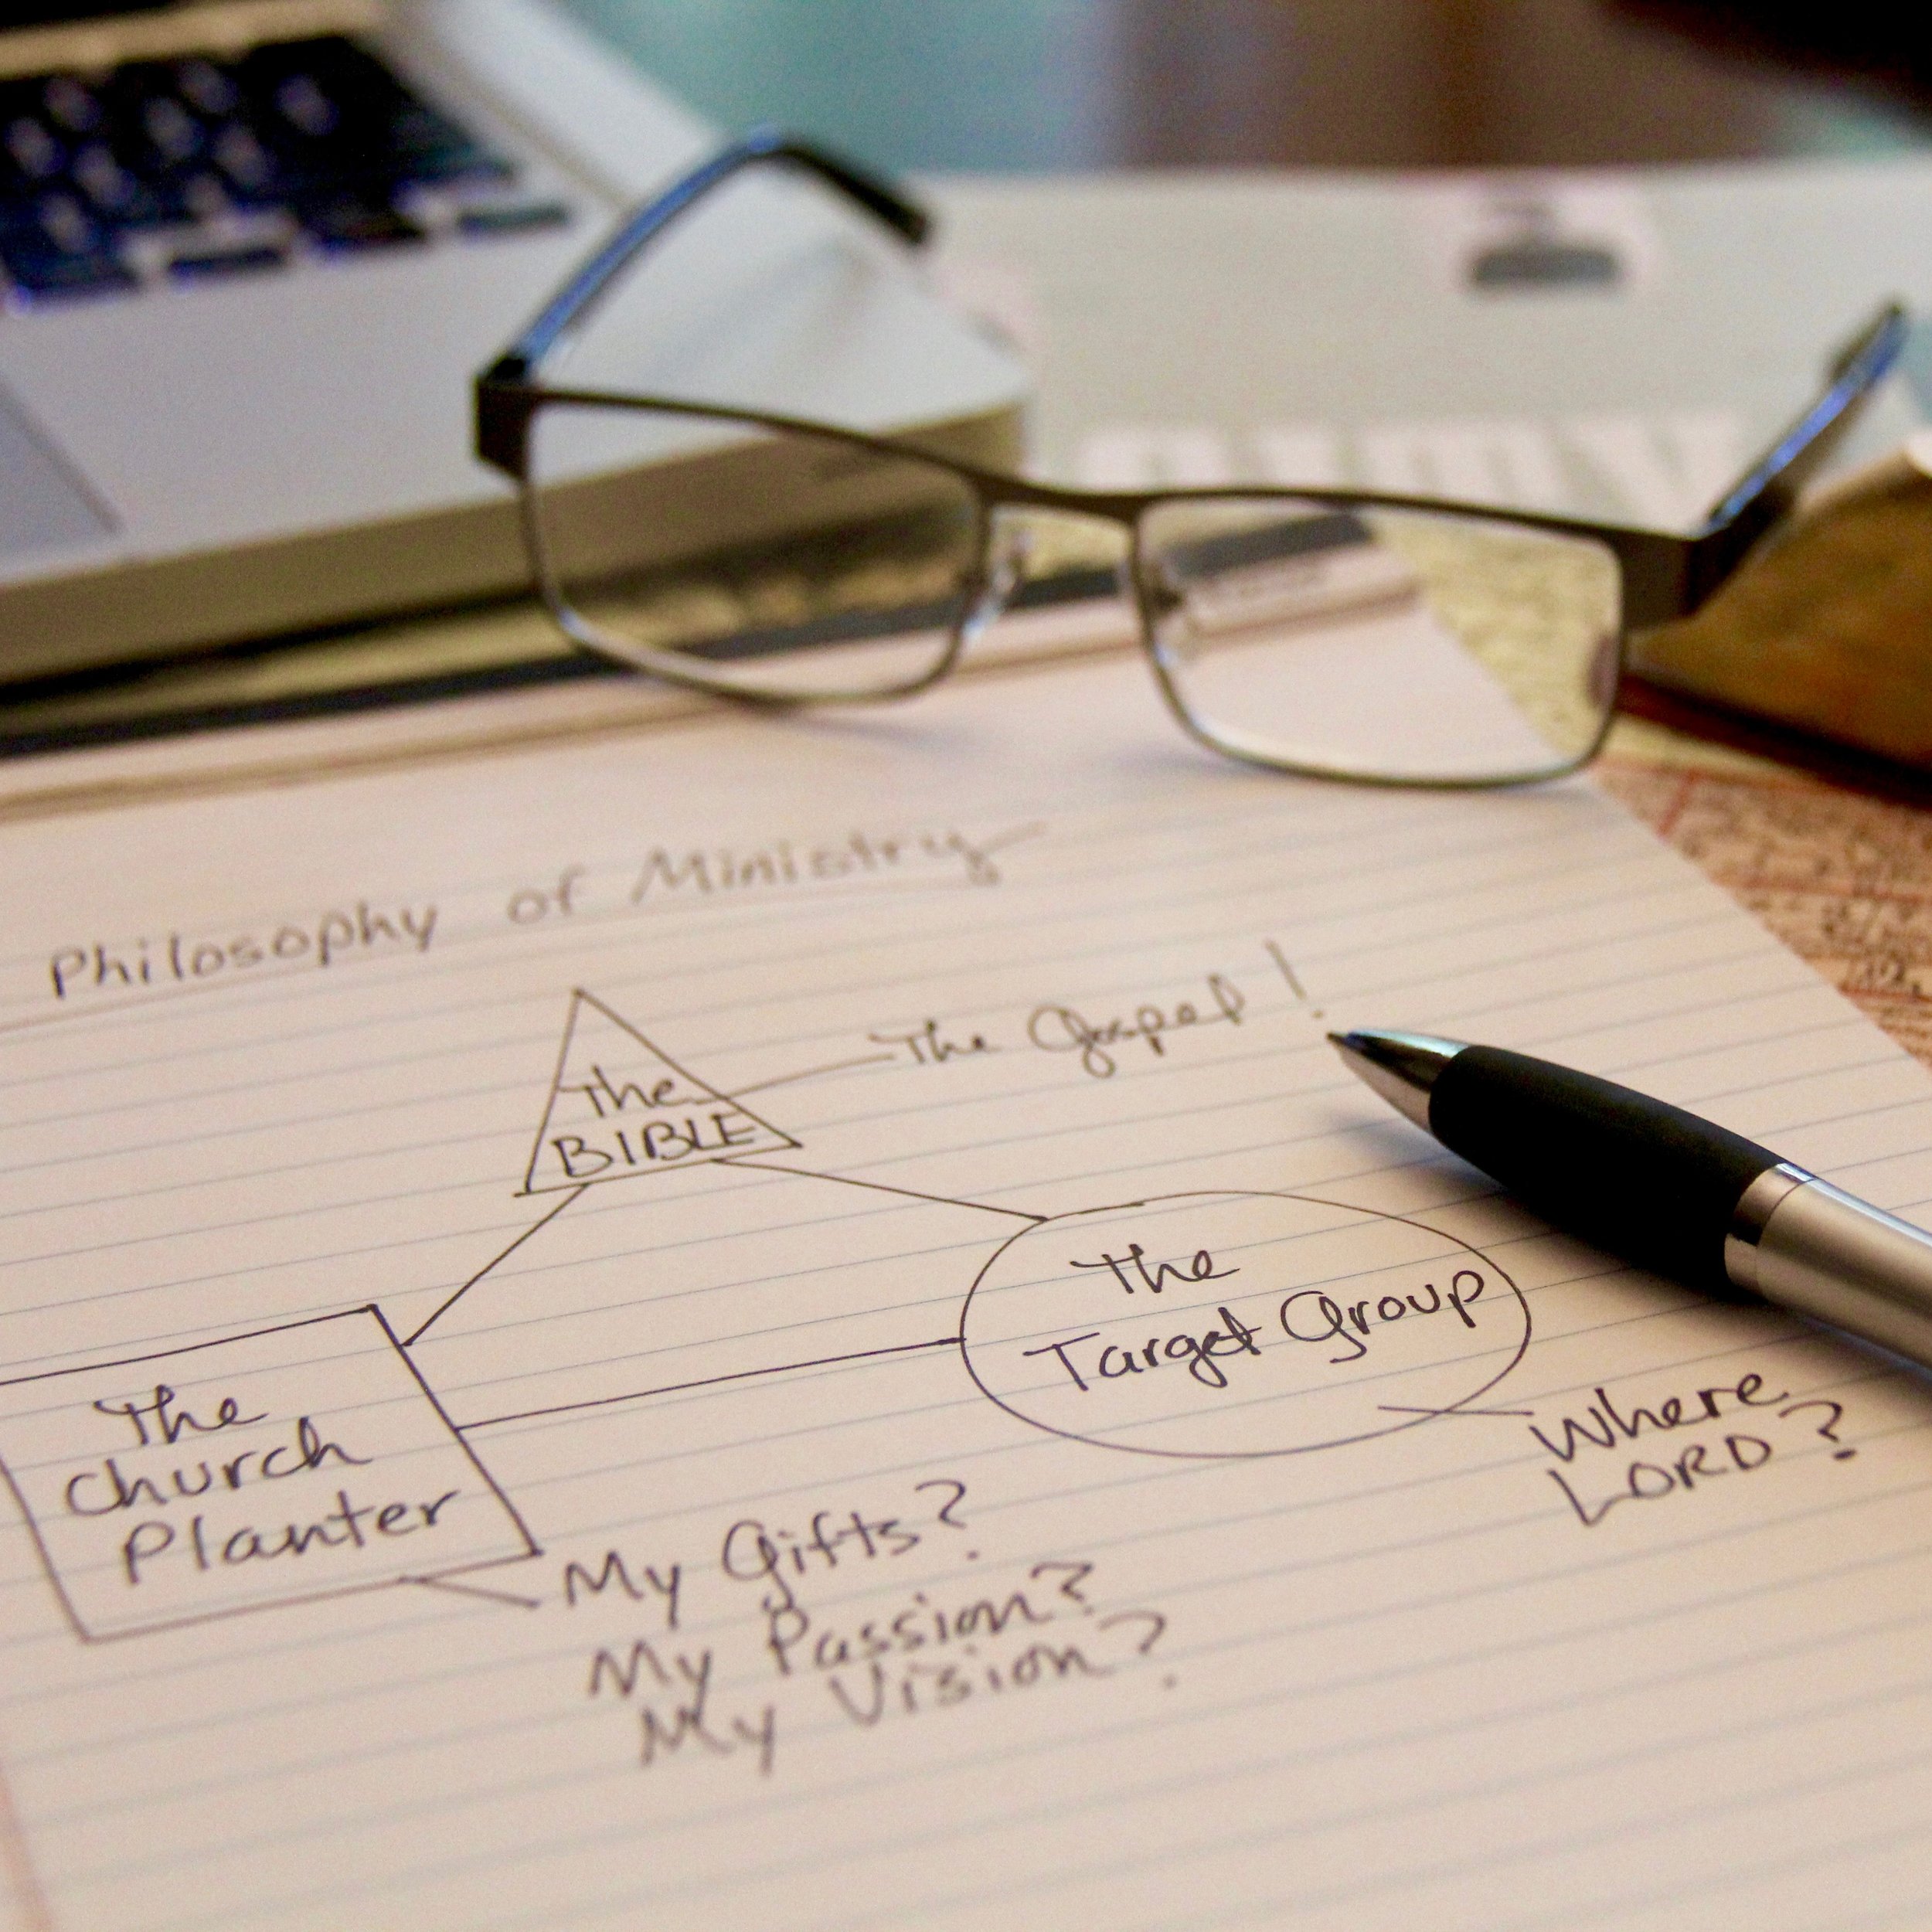 Philosophy of Ministry
The Gospel!
The
BIBLE
The
Target Group
Where
LORD?
The
Church
Planter
My Gifts?
My Passion?
My Vision?